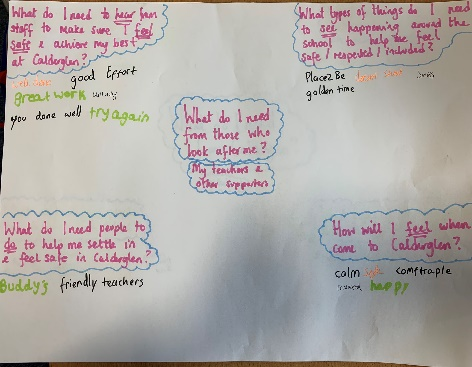 What do I need to hear from
staff to make sure I feel
safe & achieve my best
at Calderglen?
good Effort
great work
you done well try again
What types of things do I need
to see happening around the
school to help me feel
safe / respected / included?
Place2Be
golden time
What do I need
from those who
look after me?
My teachers &
other supporters
What do I need people to
do to help me settle in
& feel safe in Calderglen?
Buddy's friendly teachers
How will I feel when
come to Calderglen?
calm safe comftraple
happy